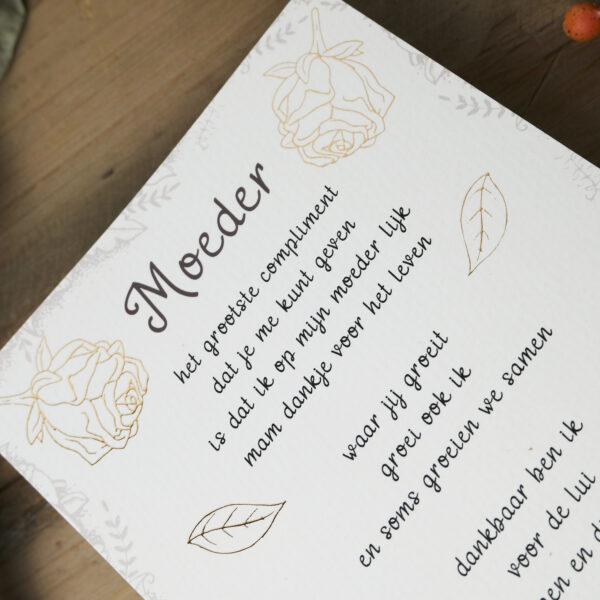 Moeder
het grootste compliment
dat je me kunt geven
is dat ik op mijn moeder lijk
mam dankje voor het leven
waar jij groeit
groei ook ik
en soms groeien we samen
dankbaar ben ik
voor de lui
en